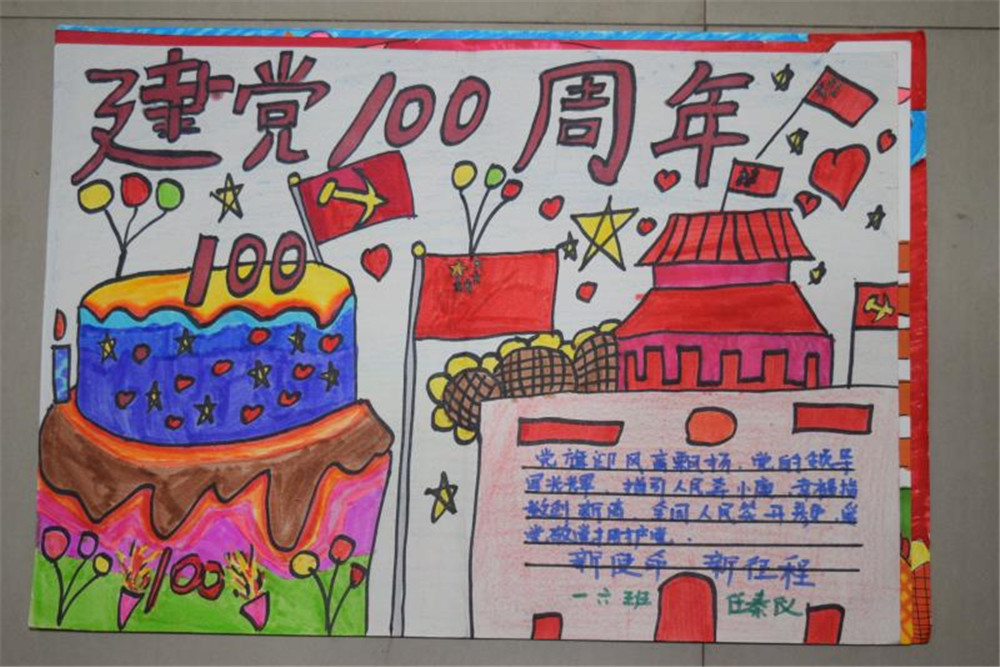 建党100周年
100
党旗迎风高飘扬，党的领导
国光辉，指引人民奔小康，幸福指
数创新高，全国人民
100
新使命 新征程
一六班